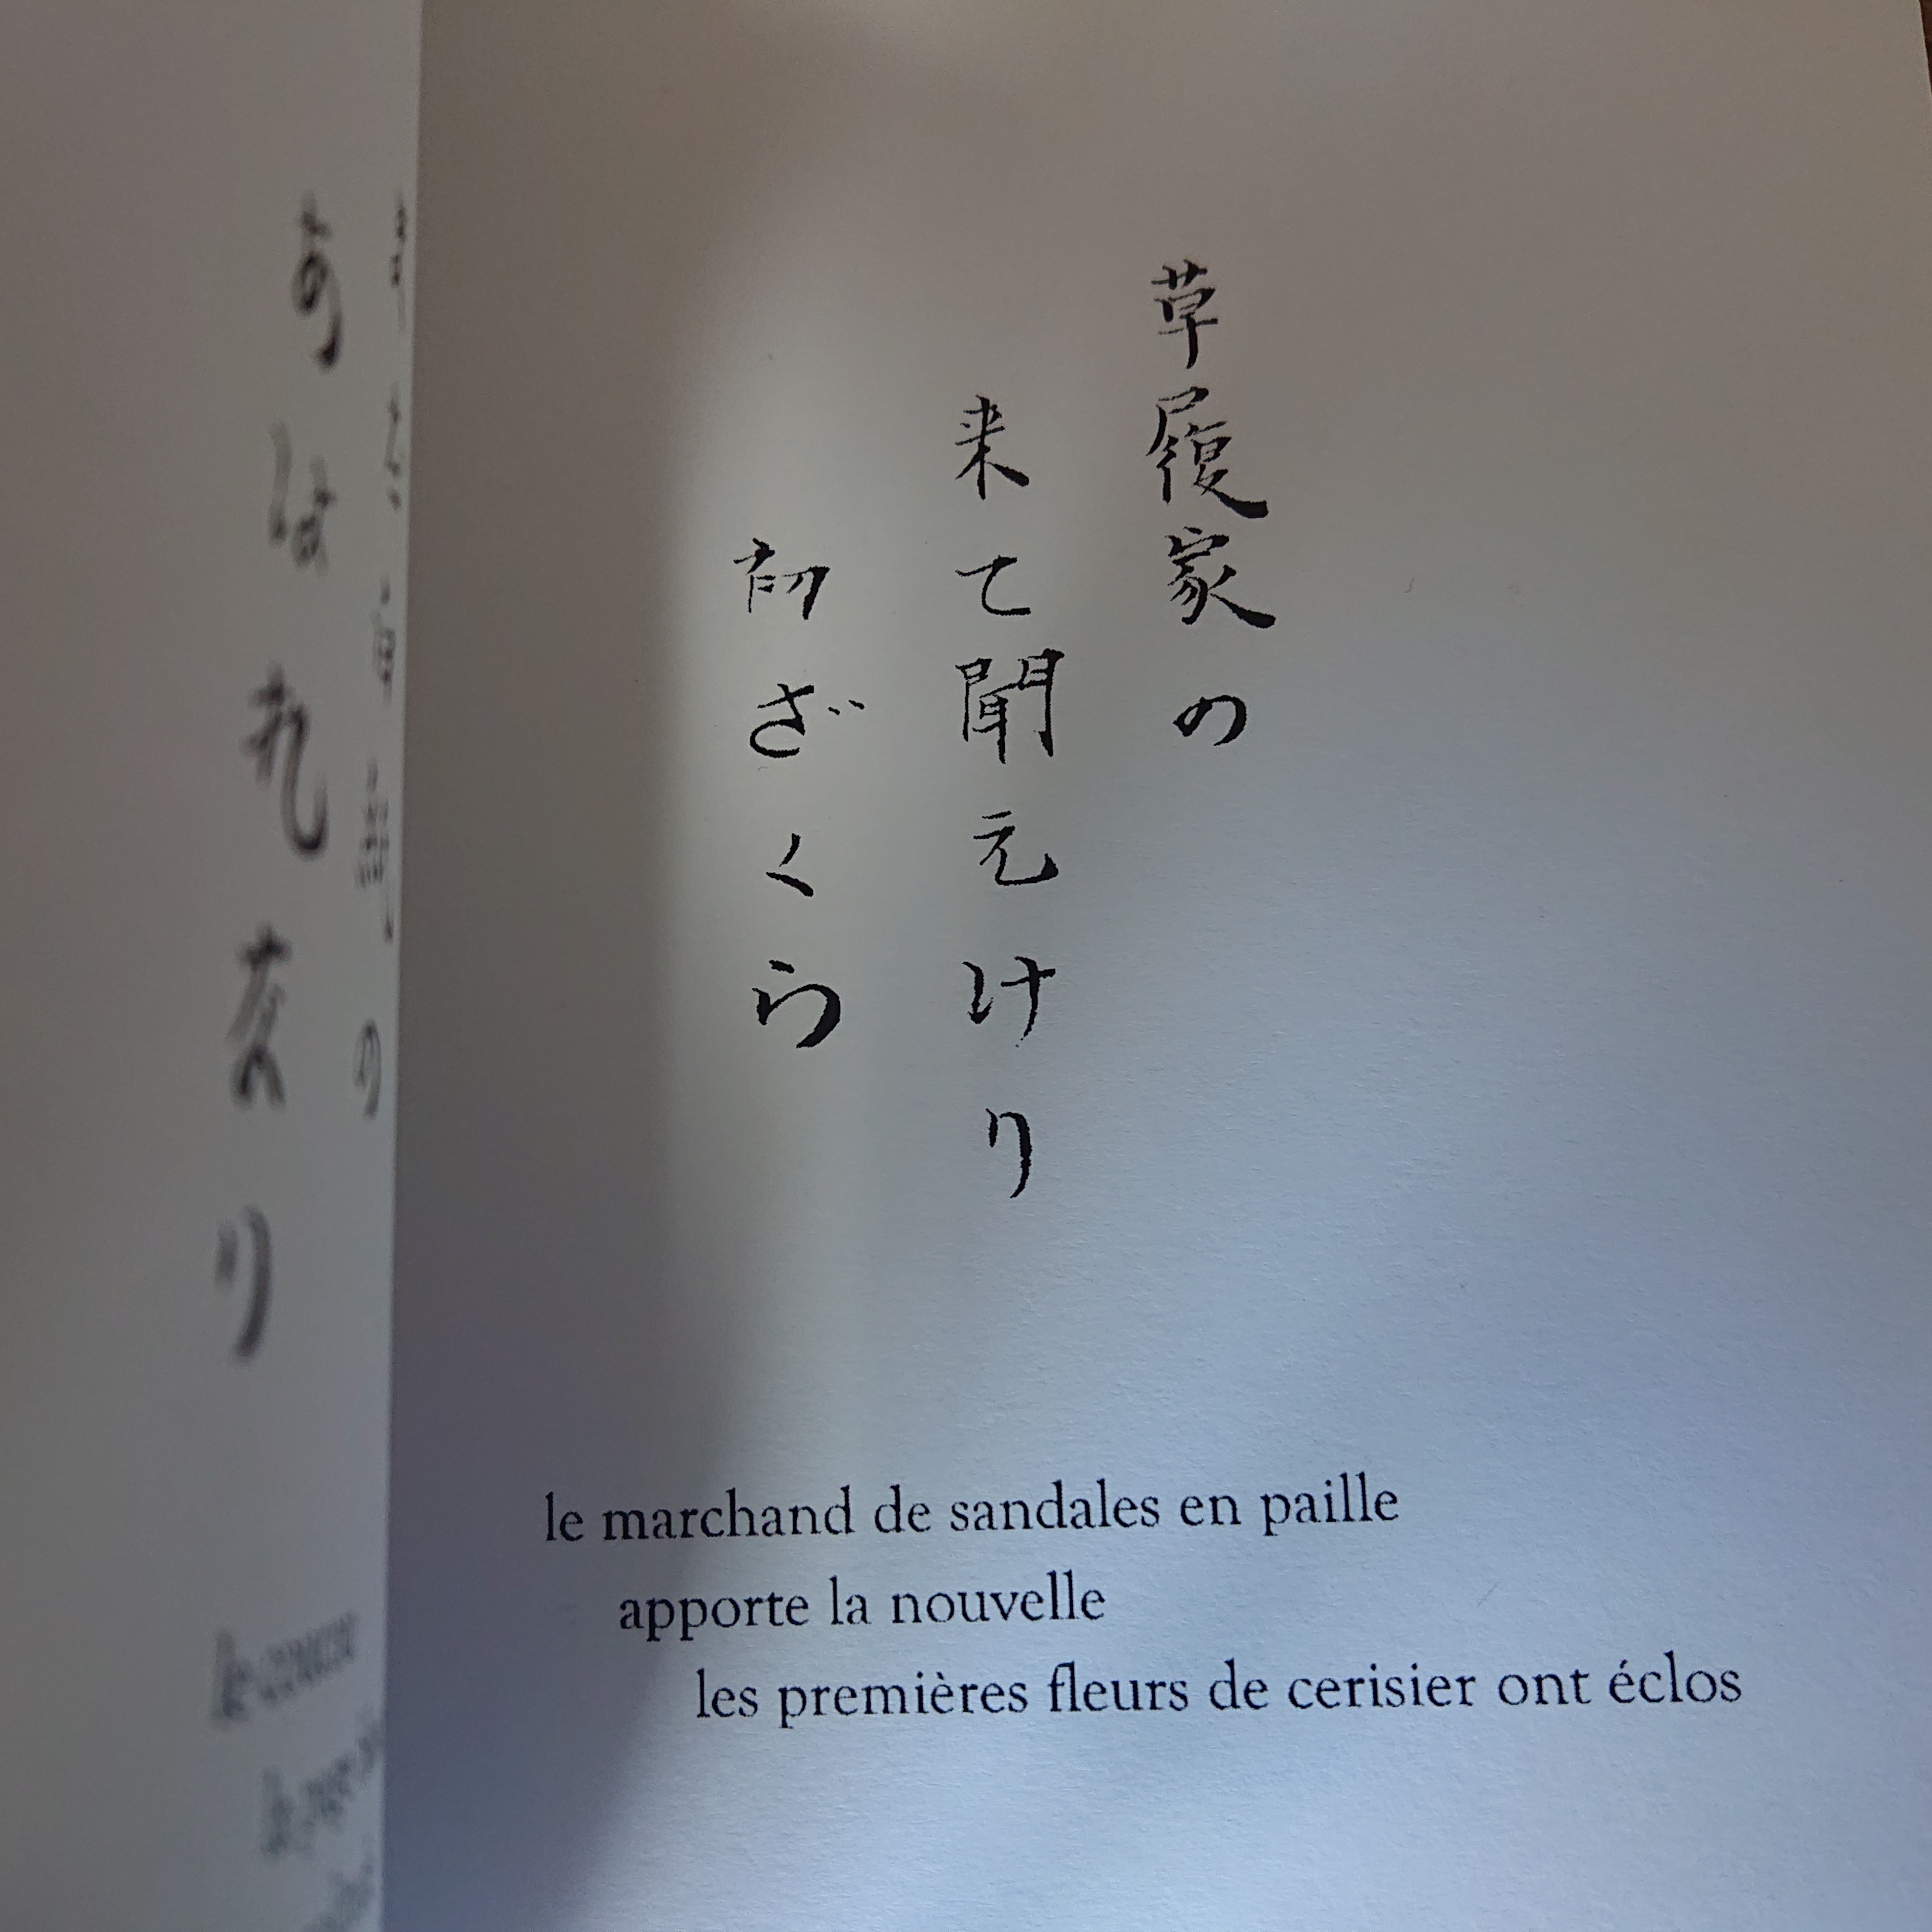 草履家の
来て聞えけり
初ざくら
le marchand de sandales en paille
apporte la nouvelle
les premières fleurs de cerisier ont éclos